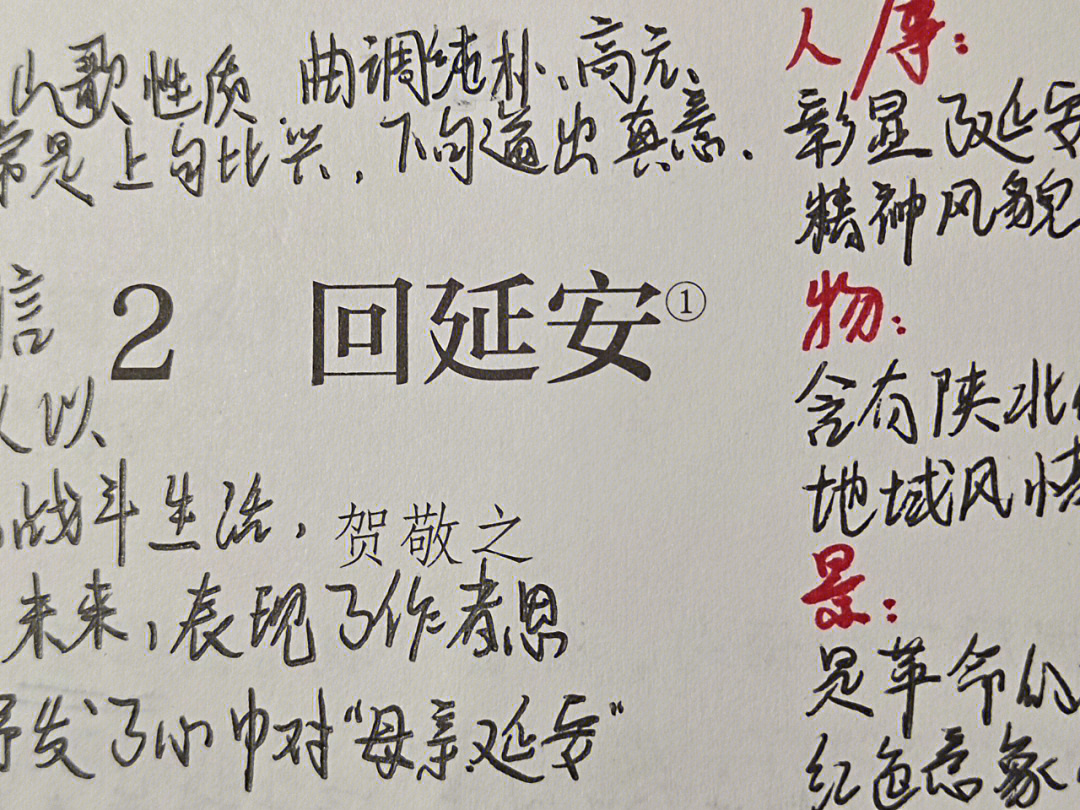 山歌性质 曲调纯朴、高亢、
常是上句比兴，下句道出真意.
2 回延安①
信
以
战斗生活，
贺敬之
未来，表现了作者思
抒发了心中对“母亲延安”
人/事：
彰显了延安
精神风貌
物：
含有陕北
地域风情
景：
是革命的
红色意象